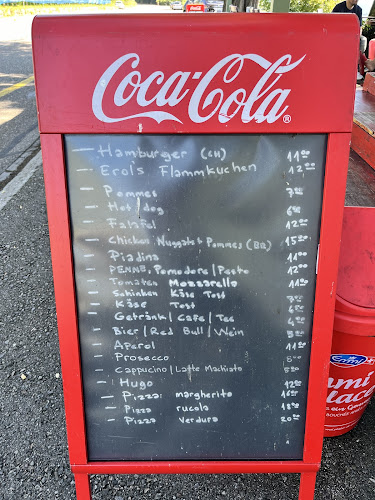 Coca-Cola ®
- Hamburger (CH) 11.00
- Erols Flammkuchen 12.00
- Pommes 7.00
- Hot/dog 6.00
- Falafel 12.00
- Chicken Nuggets + Pommes (BR) 15.00
- Piadina 11.00
- PENNE, Pomodoro/Pesto 12.00
- Tomaten Mozzarello 11.00
- Schinken Käse Tost 7.00
- Käse Tost 6.00
- Getränk/Cafe/Tee 4.00
- Bier/Red Bull/Wein 5.00
- Aperol 11.00
- Prosecco
- Cappucino/Latte Machiato
- Hugo 12.00
- Pizza: margherita 16.00
- Pizza rucola 18.00
- Pizza Verdura 20.00